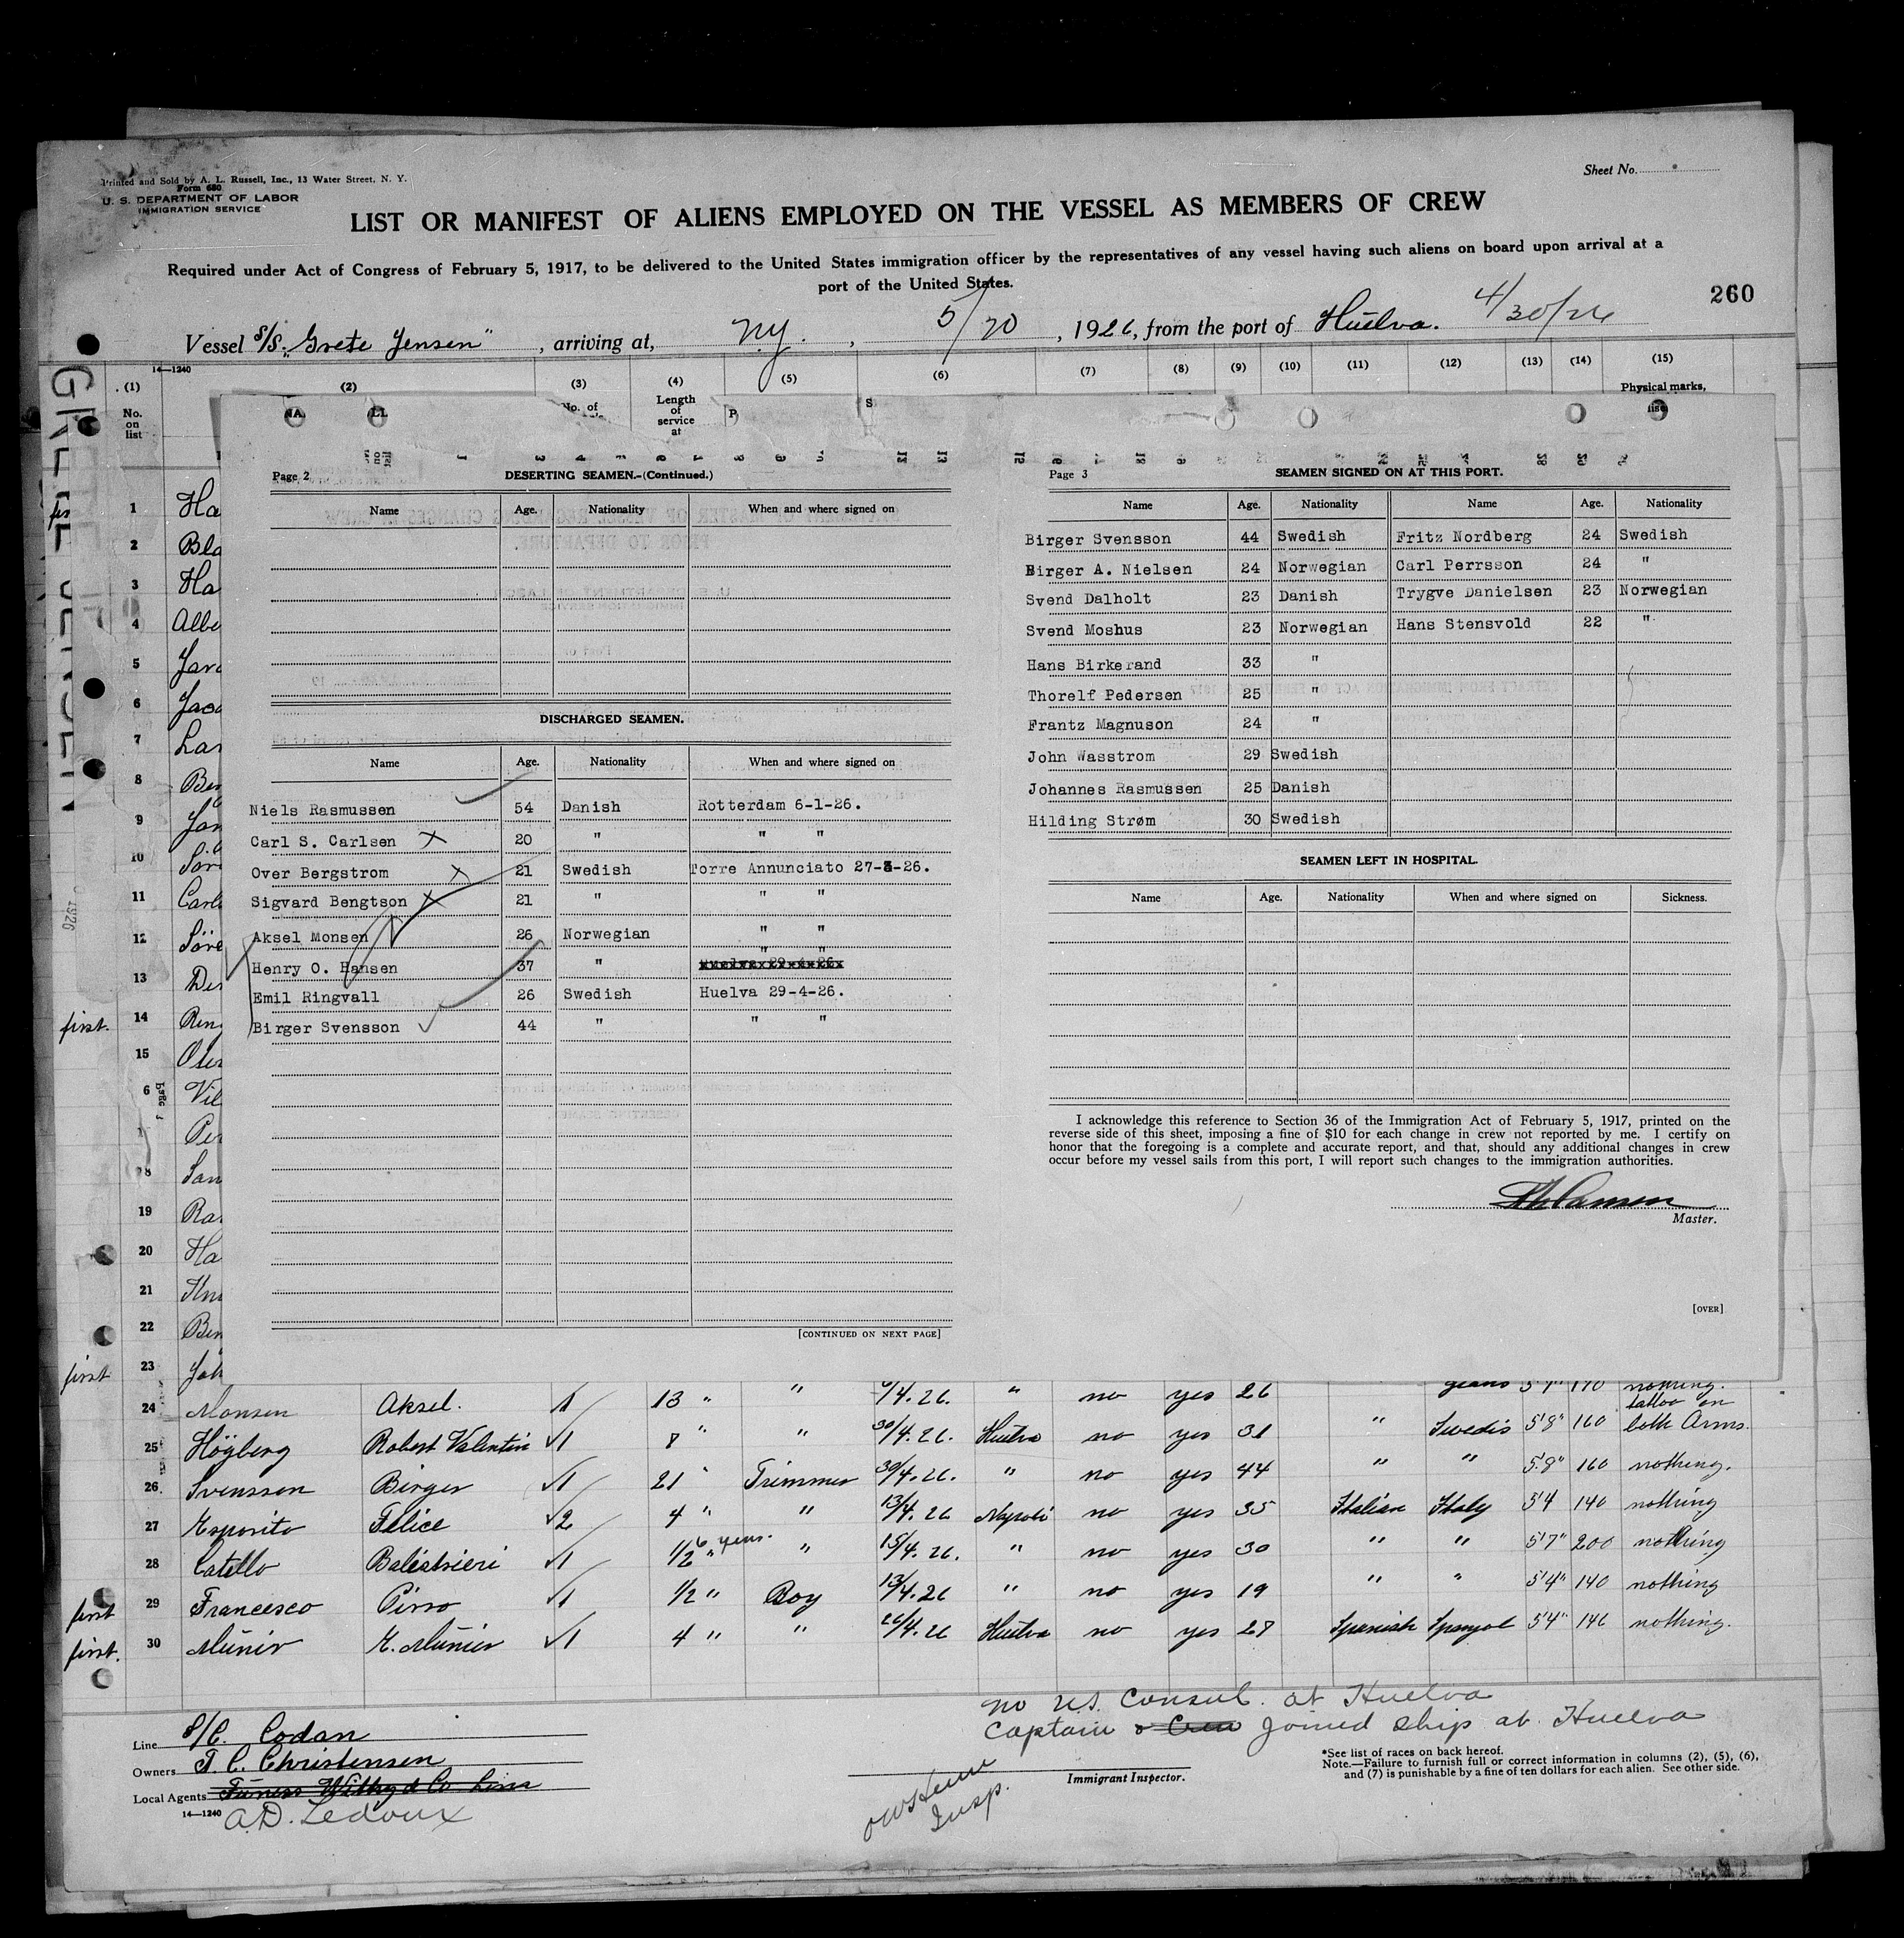 Sheet No.
Printed and Sold by A. L. Russell, Inc., 13 Water Street, N. Y.
Form 680
U. S. DEPARTMENT OF LABOR
IMMIGRATION SERVICE
LIST OR MANIFEST OF ALIENS EMPLOYED ON THE VESSEL AS MEMBERS OF CREW
Required under Act of Congress of February 5, 1917, to be delivered to the United States immigration officer by the representatives of any vessel having such aliens on board upon arrival at a
port of the United States.
260
Vessel S/S. „Grete Jensen", arriving at, N.Y., 5/20, 1926, from the port of Huelva. 4/30/26
14—1240
(1) (2) (3) (4) (5) (6) (7) (8) (9) (10) (11) (12) (13) (14) (15)
No. on list
No. of
Length of service at
Physical marks,
Page 2 DESERTING SEAMEN.-(Continued.)
Name Age. Nationality When and where signed on
DISCHARGED SEAMEN.
Name Age. Nationality When and where signed on
Niels Rasmussen 54 Danish Rotterdam 6-1-26.
Carl S. Carlsen 20 " " "
Over Bergstrom 21 Swedish Torre Annunciato 27-3-26.
Sigvard Bengtson 21 " " "
Aksel Monsen 26 Norwegian " "
Henry O. Hansen 37 " " "
Emil Ringvall 26 Swedish Huelva 29-4-26.
Birger Svensson 44 " " "
[CONTINUED ON NEXT PAGE]
Page 3 SEAMEN SIGNED ON AT THIS PORT.
Name Age. Nationality Name Age. Nationality
Birger Svensson 44 Swedish Fritz Nordberg 24 Swedish
Birger A. Nielsen 24 Norwegian Carl Perrsson 24 "
Svend Dalholt 23 Danish Trygve Danielsen 23 Norwegian
Svend Moshus 23 Norwegian Hans Stensvold 22 "
Hans Birkerand 33 "
Thorelf Pedersen 25 "
Frantz Magnuson 24 "
John Wasstrom 29 Swedish
Johannes Rasmussen 25 Danish
Hilding Strøm 30 Swedish
SEAMEN LEFT IN HOSPITAL.
Name Age. Nationality When and where signed on Sickness.
I acknowledge this reference to Section 36 of the Immigration Act of February 5, 1917, printed on the
reverse side of this sheet, imposing a fine of $10 for each change in crew not reported by me. I certify on
honor that the foregoing is a complete and accurate report, and that, should any additional changes in crew
occur before my vessel sails from this port, I will report such changes to the immigration authorities.
Master.
[OVER]
1 Ha
2 Bla
3 Ha
4 Albe
5
6
7 Lar
8 Ben
9
10 Sör
11 Carl
12 Söre
13
first. 14 Ring
15
6 Vil
Per
18 San
19 Ra
20 Ha
21 Knu
22 Ben
first 23 Joh
24 Monsen Aksel. 1 13 " " /4.26. " no yes 26 5'7" 170 nothing.
25 Höyberg Robert Valentin 1 8 " " 30/4.26. Huelva no yes 31 " Swedis 5'8" 160 tattoo on both Arms.
26. Svensson Birger 1 21 " Trimmer 30/4.26. " no yes 44 " " 5'8" 160 nothing.
27 Esposito Felice 2 4 " " 13/4.26 Napoli no yes 35 Italian Italy 5'4 140 nothing
28 Catello Balestrieri 1 1/2 " 6 years. " 15/4.26. " no yes 30 " " 5'7" 200 nothing
first 29 Francesco Pirro 1 1/2 " Boy 13/4.26 " no yes 19 " " 5'4" 140 nothing
first. 30 Munir 1 4 " " 26/4.26 Huelva no yes 27 Spanish Spanjol 5'4" 146 nothing.
no U.S. Consul. at Huelva
Captain & Crew joined Ship at Huelva
Line S/C. Codan
Owners T. C. Christensen
Local Agents Furness Withy & Co Line
14—1240
A.D. Ledoux
Insp.
Immigrant Inspector.
*See list of races on back hereof.
Note.—Failure to furnish full or correct information in columns (2), (5), (6),
and (7) is punishable by a fine of ten dollars for each alien. See other side.